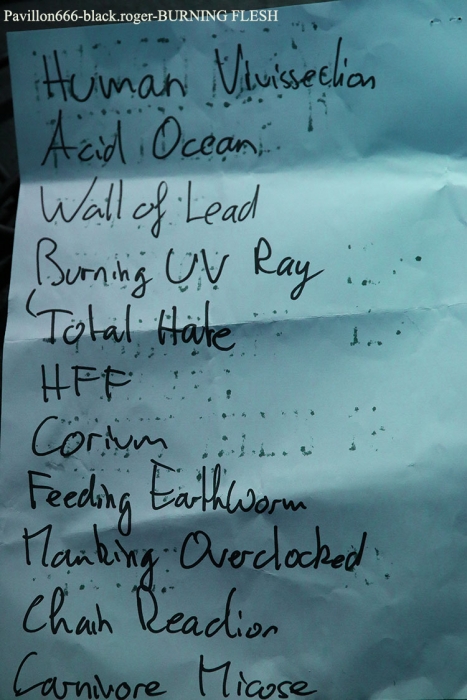 Pavillon666-black.roger-BURNING FLESH
Human Vivissection
Acid Ocean
Wall of Lead
Burning UV Ray
Total Hate
HFF
Corium
Feeding EarthWorm
Manking Overclocked
Chain Reaction
Carnivore Micose